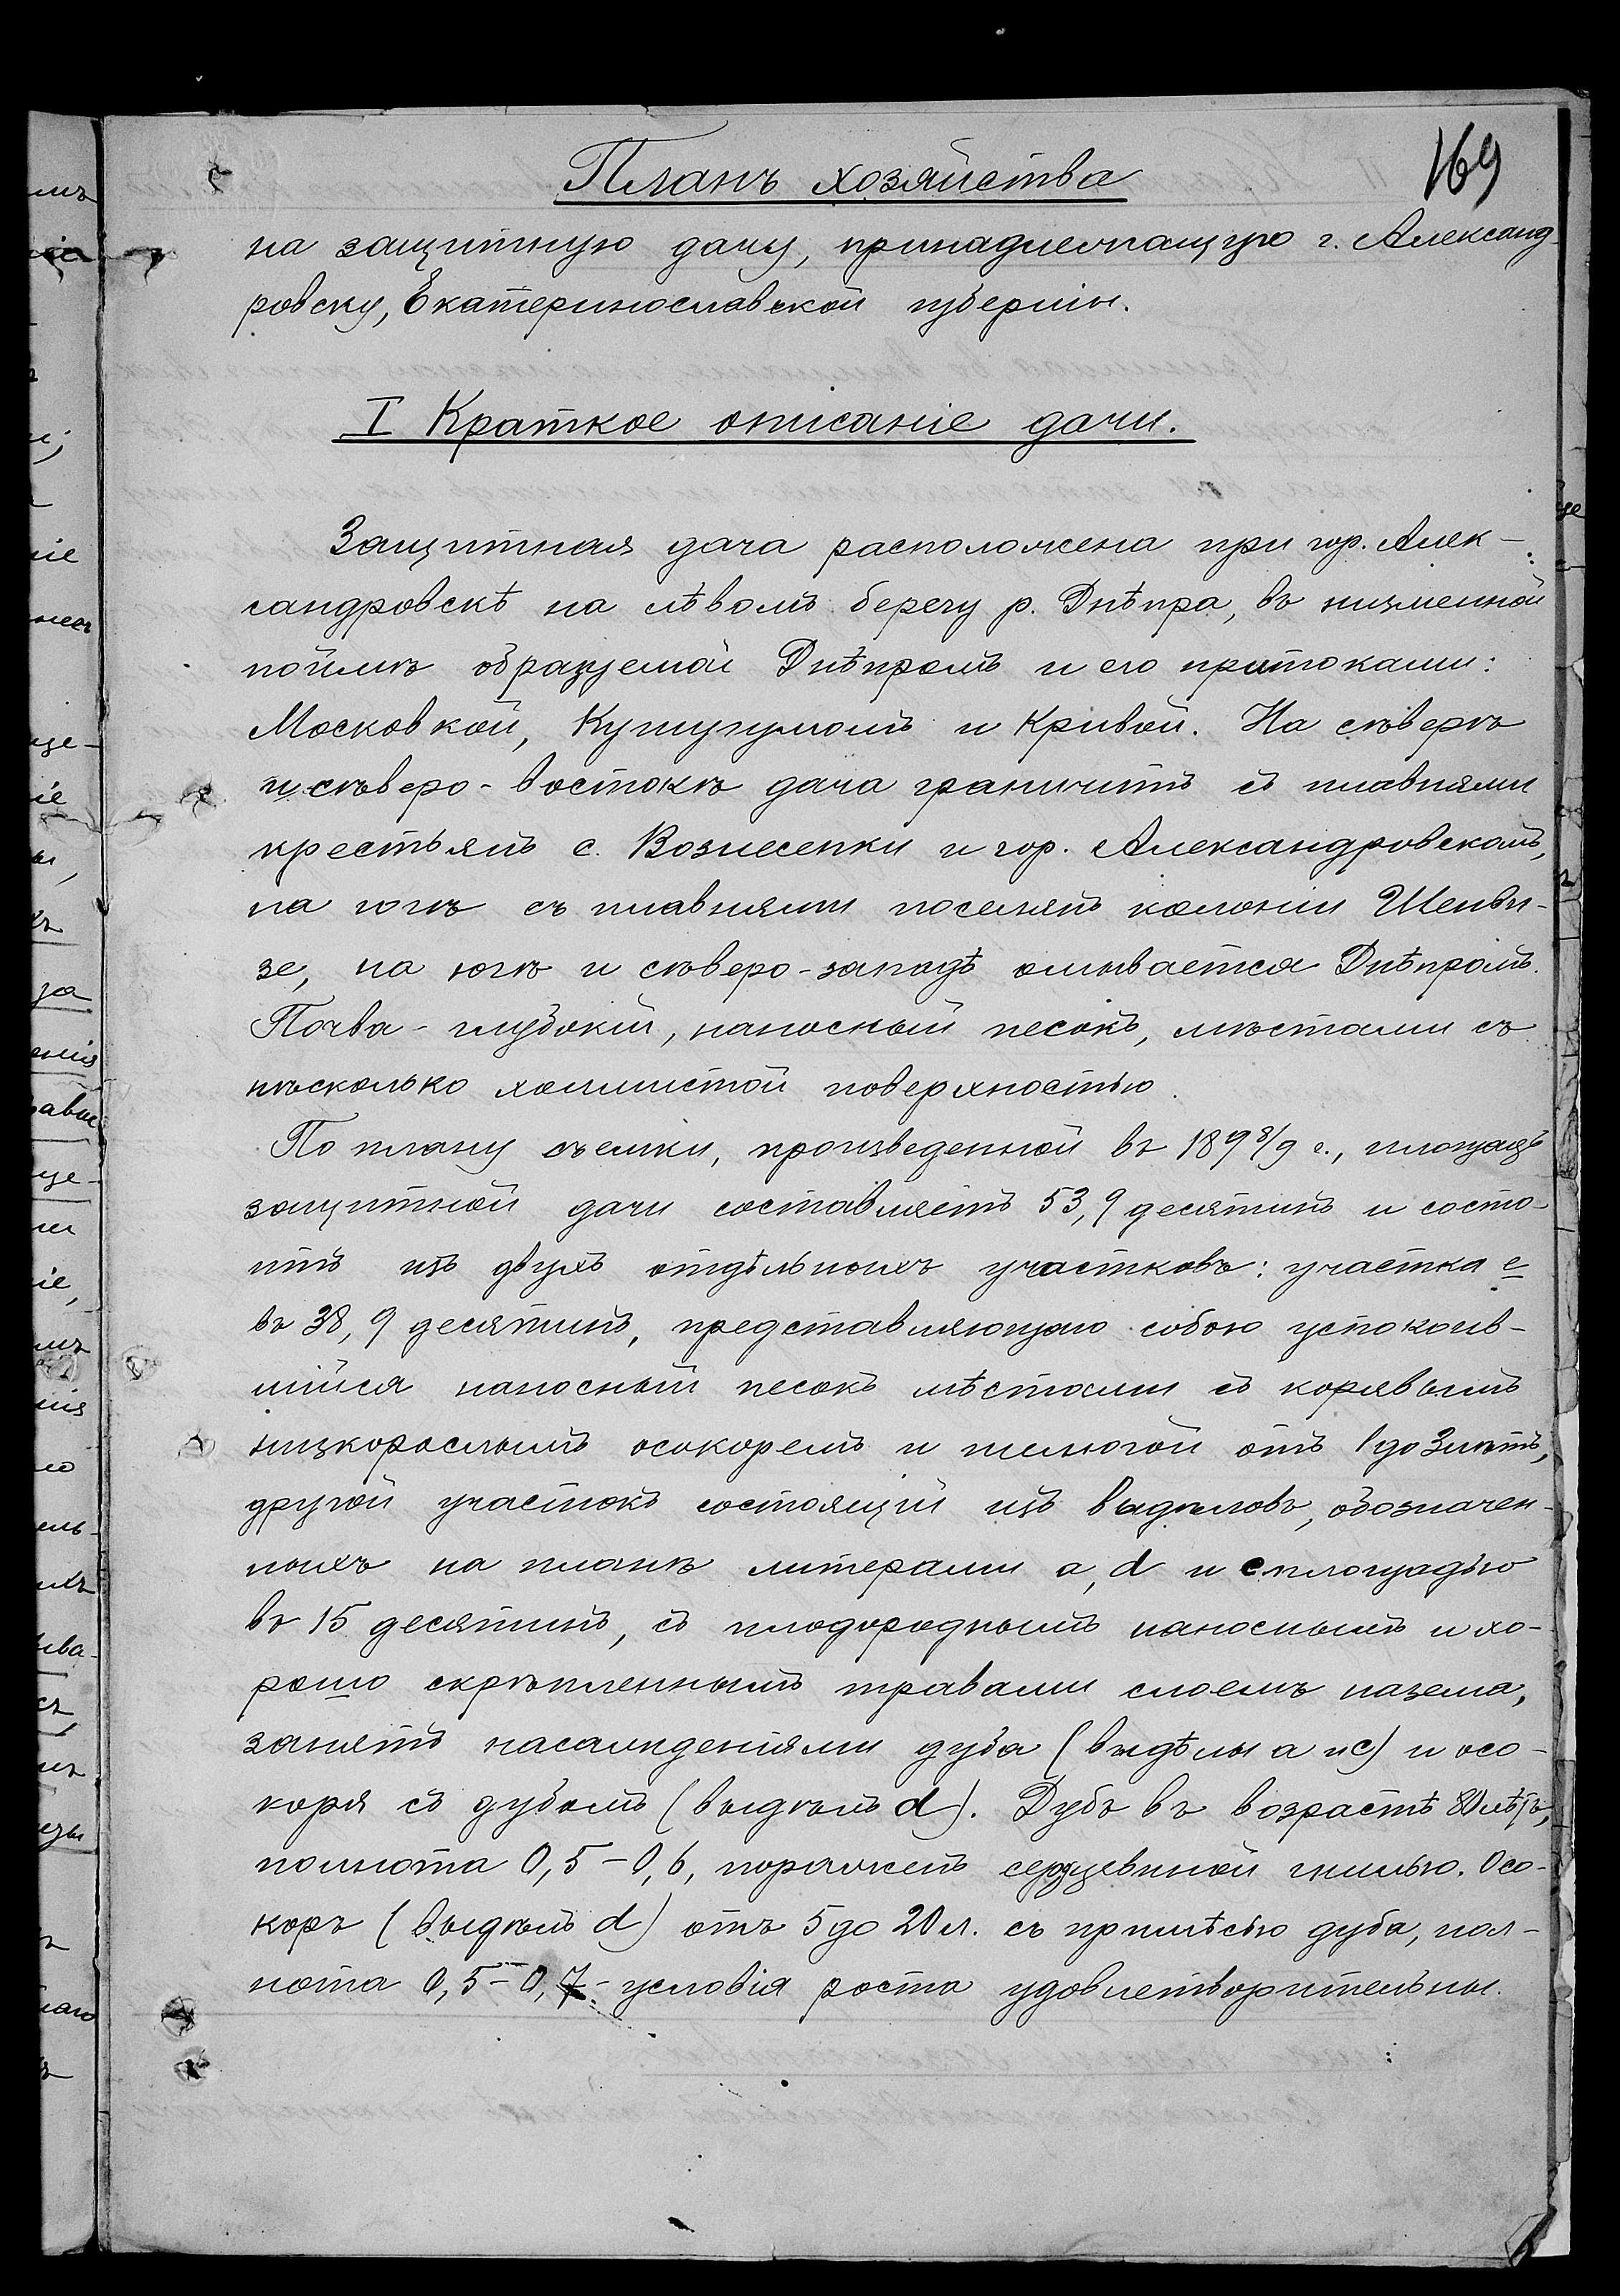 169
Планъ хозяйства
на защитную дачу, принадлежащую г. Александ-
ровску, Екатеринославской губерніи.
I Краткое описаніе дачи.
Защитная дача расположена при гор. Алек-
сандровскѣ на лѣвомъ берегу р. Днѣпра, въ низменной
поймѣ образуемой Днѣпромъ и его притоками:
Московкой, Кутугумомъ и Кривой. На сѣверѣ
и сѣверо-востокѣ дача граничитъ съ плавнями
крестьянъ с. Вознесенки и гор. Александровскомъ,
на югѣ съ плавнями поселянъ колоніи Шенви-
зе, на югѣ и сѣверо-западѣ омывается Днѣпромъ.
Почва - глубокій, наносный песокъ, мѣстами съ
нѣсколько холмистой поверхностью.
По плану съемки, произведенной въ 189 8/9 г., площадь
защитной дачи составляетъ 53,9 десятинъ и состо-
итъ изъ двухъ отдѣльныхъ участковъ: участка е
въ 38,9 десятинъ, представляющаго собою успокоив-
шійся наносный песокъ мѣстами съ корявымъ
низкорослымъ осокоремъ и шелюгой отъ 1 до 3 лѣтъ,
другой участокъ состоящій изъ выдѣловъ, обозначен-
ныхъ на планѣ литерами а, d и с площадью
въ 15 десятинъ, съ плодороднымъ наноснымъ и хо-
рошо скрѣпленнымъ травами слоемъ назема,
занятъ насажденіями дуба (выдѣлы а и с) и осо-
коря съ дубомъ (выдѣлъ d). Дубъ въ возрастѣ 80 лѣтъ,
полнота 0,5-0,6, пораженъ сердцевиной гнилью. Осо-
корь (выдѣлъ d) отъ 5 до 20 л. съ примѣсью дуба, пол-
нота 0,5-0,7 - условія роста удовлетворительны.